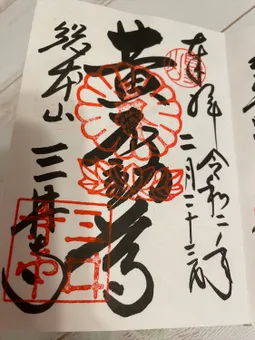 奉拝 令和二年二月二十三日
黄不動尊
総本山 三井寺